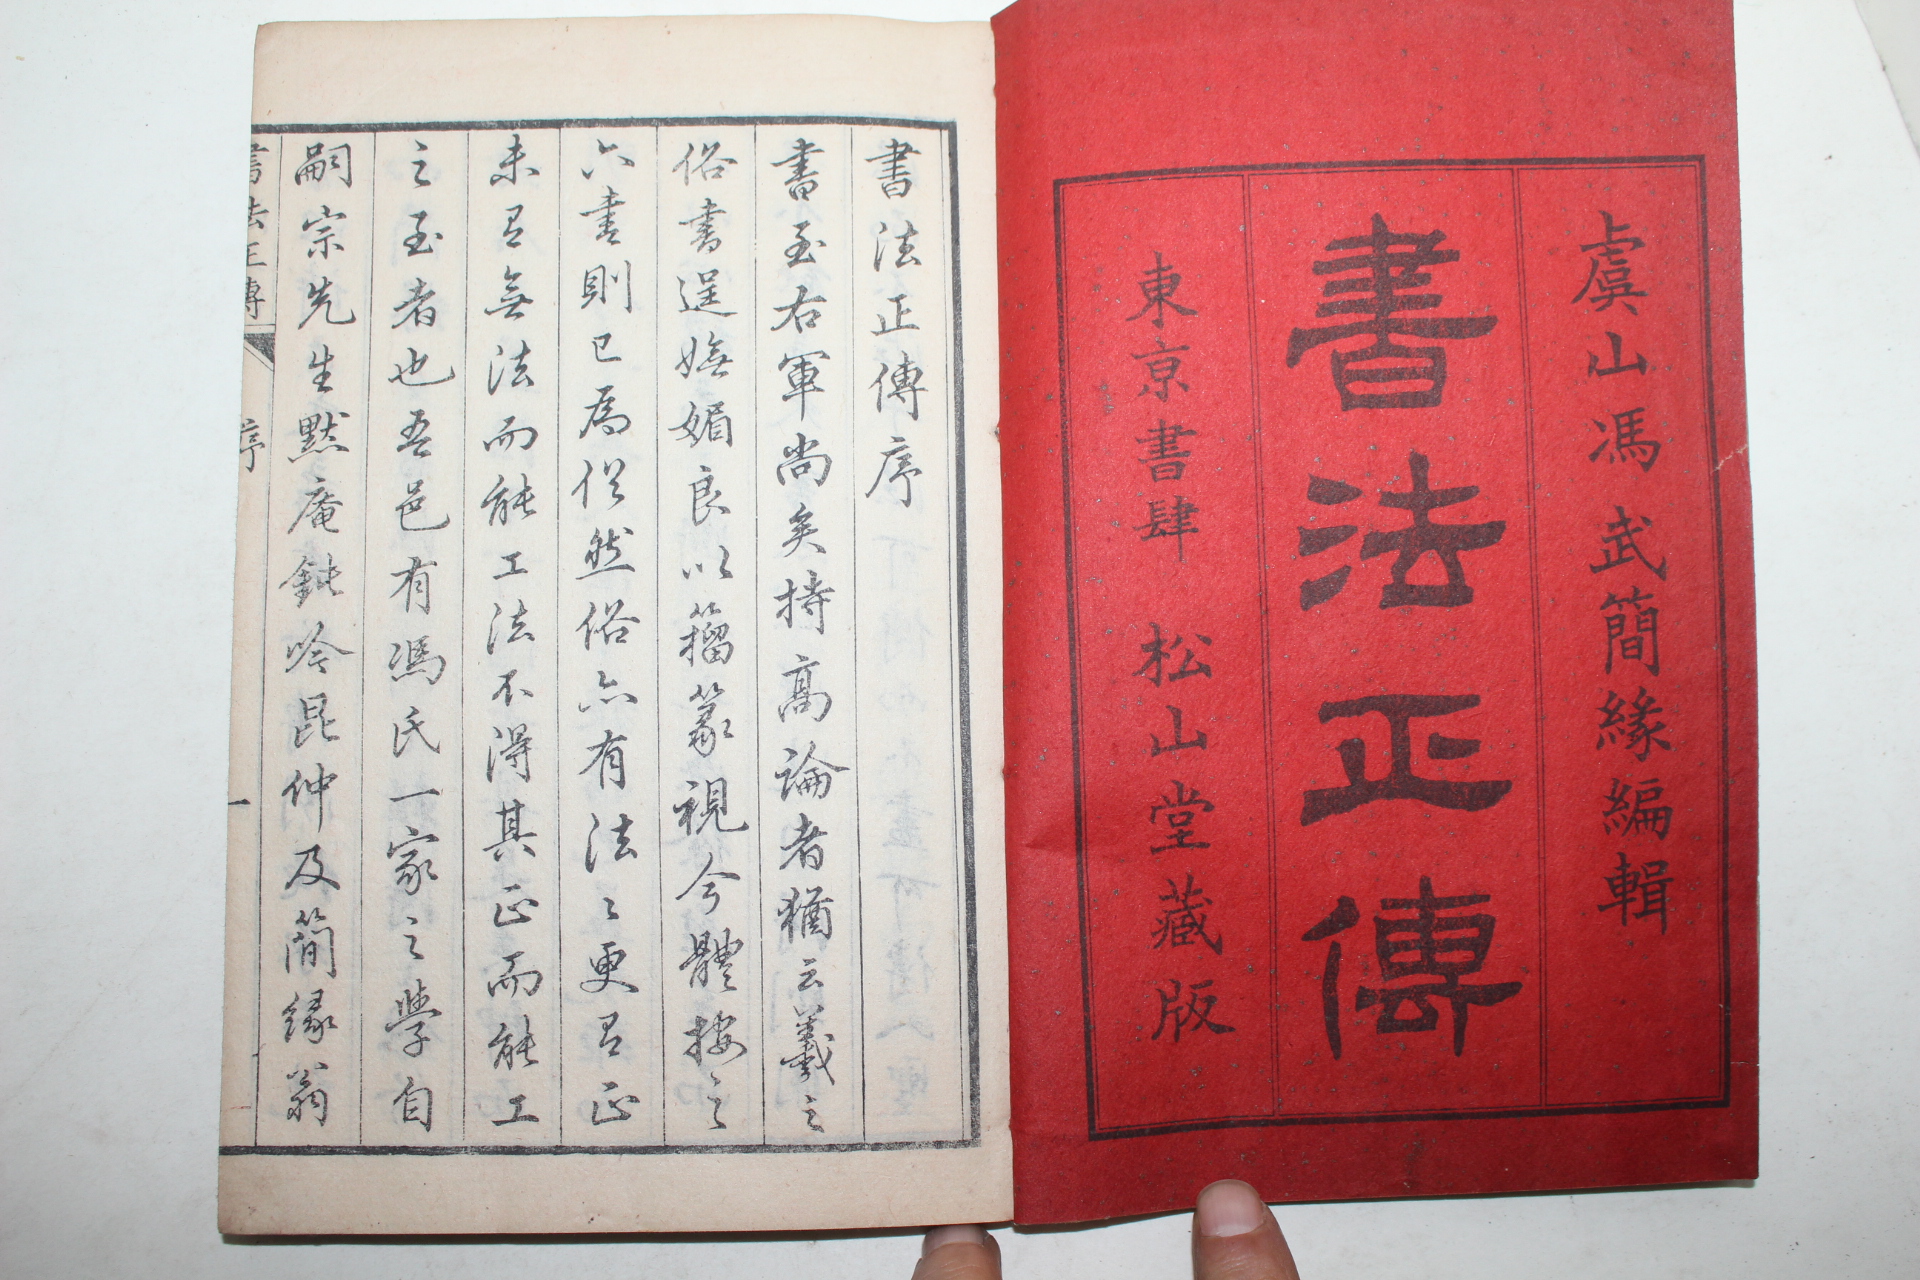 虞山馮武簡緣編輯
書法正傳
東京書肆 松山堂藏版
書法正傳序
書至右軍尚矣持高論者猶云羲之
俗書逞嫵媚良以籀篆視今體接之
六書則已為俗然俗亦有法〻更有正
未有無法而能工工法不得其正而能工
之至者也吾邑有馮氏一家之學自
嗣宗先生默庵鈍吟昆仲及簡緣翁
書法正傳 序 一